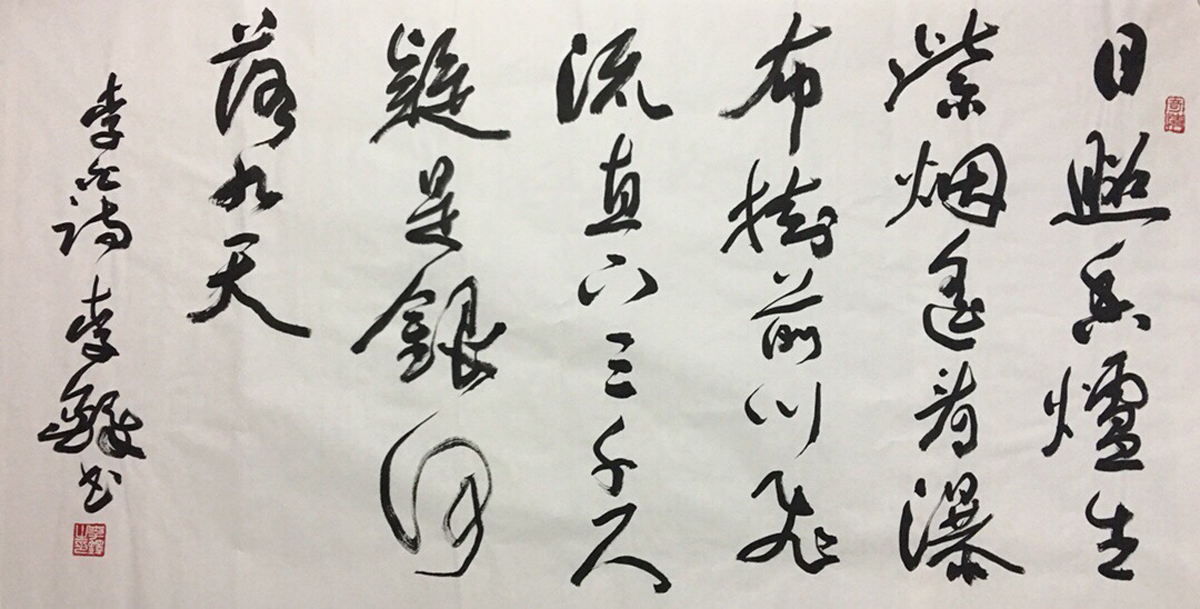 日照香爐生
紫烟遙看瀑
布掛前川飛
流直下三千尺
疑是銀河
落九天
李白诗 李鐸书